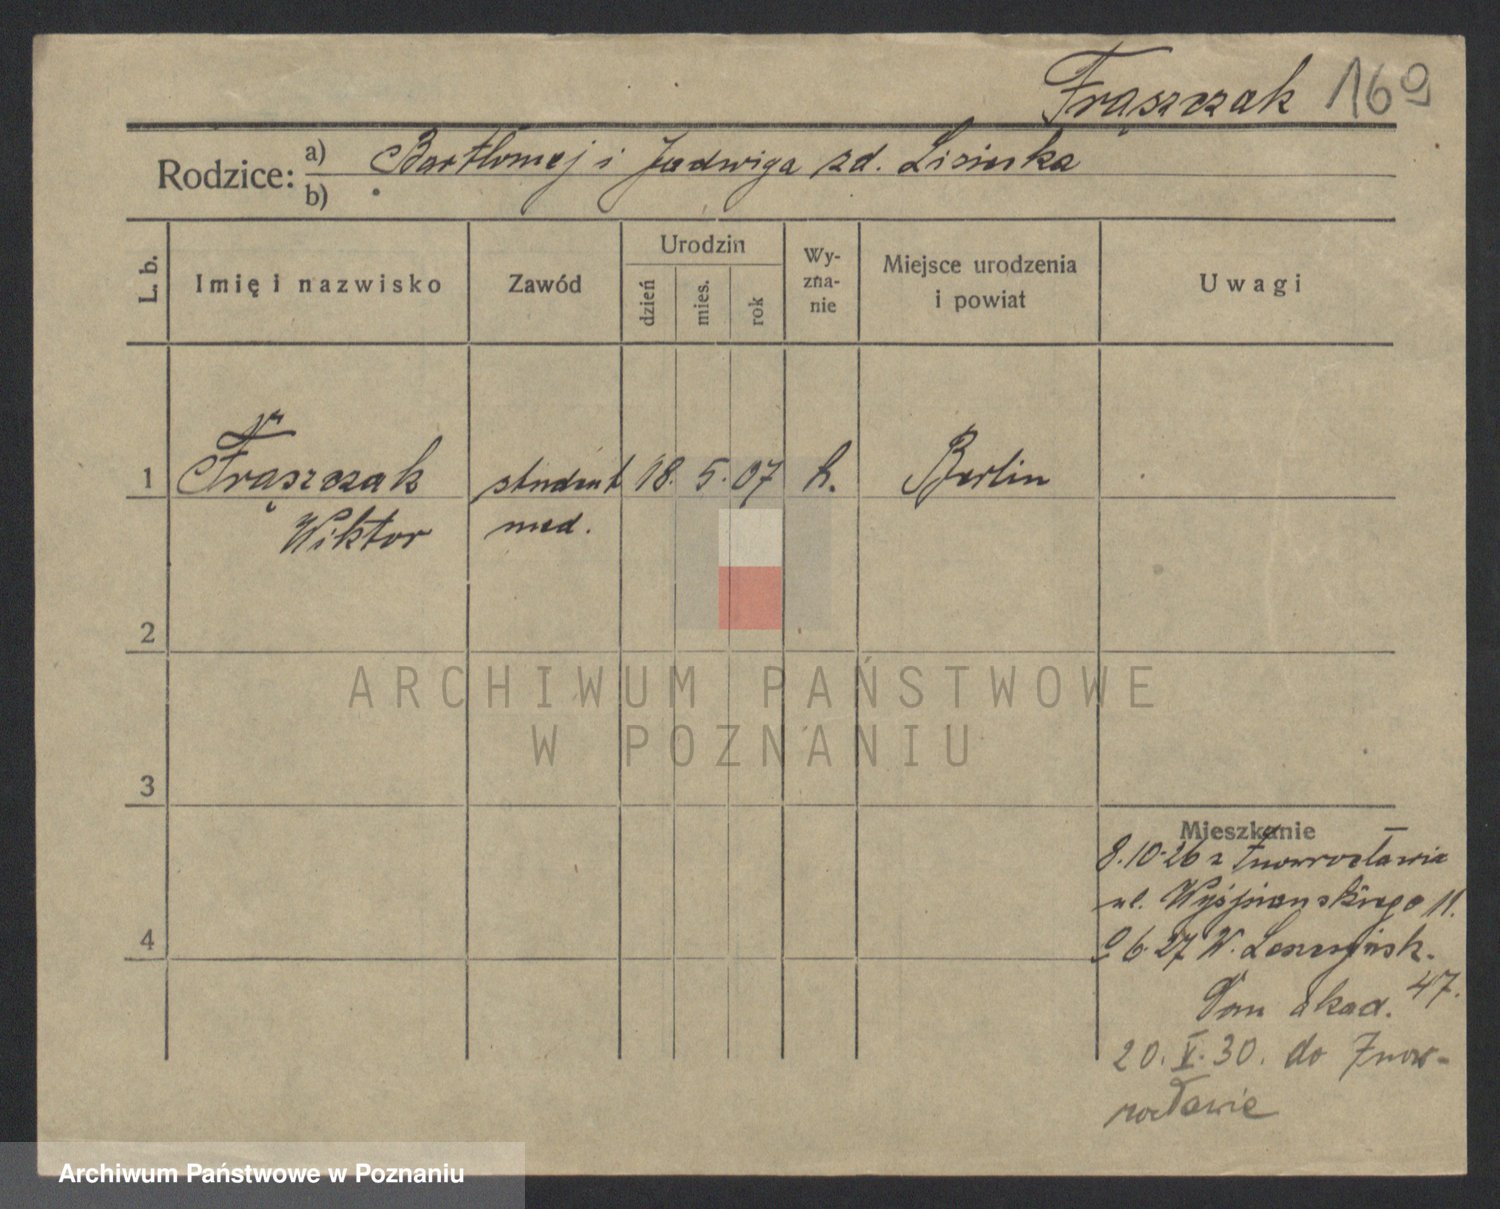 Frąszczak 169
Rodzice: a) Bartłomej i Jadwiga zd. Lisiecka
b)
L. b. Imię i nazwisko Zawód Urodzin dzień mies. rok Wy-zna-nie Miejsce urodzenia i powiat Uwagi
1 Frąszczak student 18. 5. 07 k. Berlin
Wiktor med.
2
ARCHIWUM PAŃSTWOWE
W POZNANIU
3
Mieszkanie
8.10.26 z Inowrocławia
ul. Wyspiańskiego 11.
9.6.27 W. Leszczyńsk.
Dom akad. 47.
4
20. V. 30. do Inow-
rocławia
Archiwum Państwowe w Poznaniu